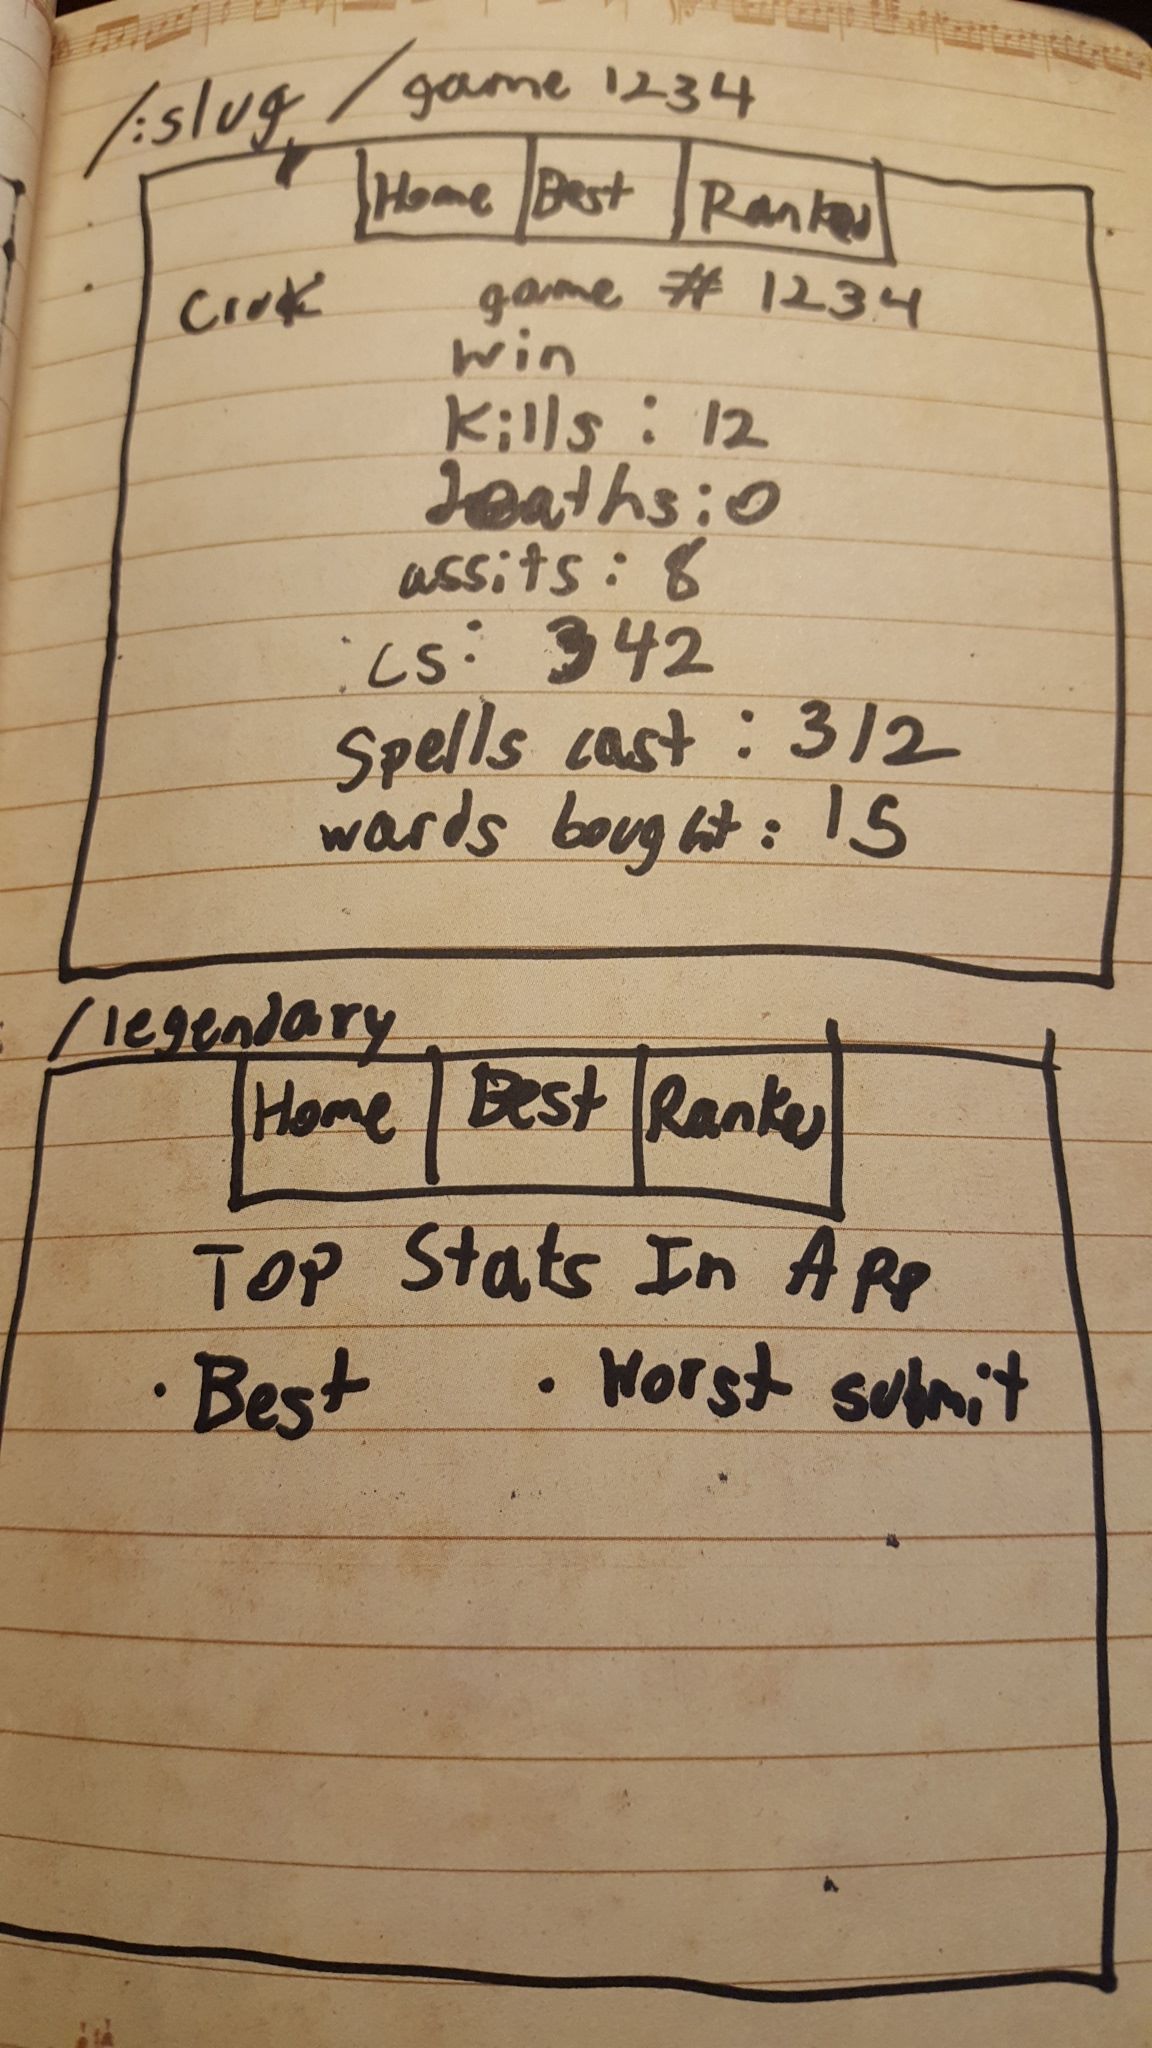 /:slug / game 1234
Home Best Ranked
game # 1234
Win
Kills : 12
Deaths : 0
assits : 8
cs : 342
Spells cast : 312
wards bought : 15
/legendary
Home Best Ranked
Top Stats In App
· Best · Worst submit